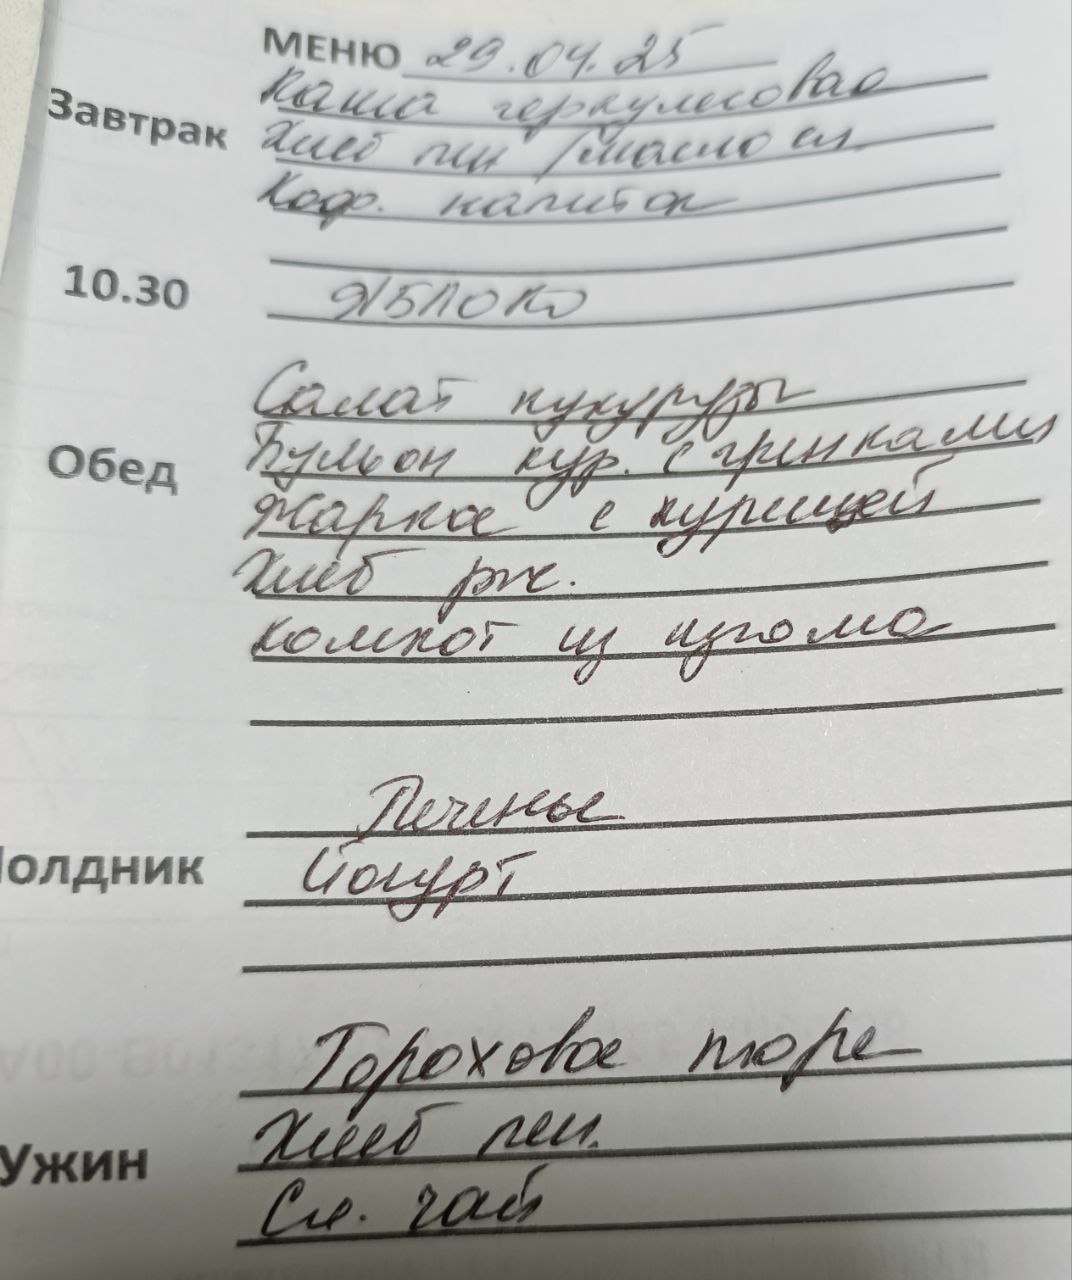 МЕНЮ 29.04.25
Завтрак
Каша геркулесовая
Хлеб пш / масло сл.
Коф. напиток
10.30
ЯБЛОКО
Обед
Салат кукурузы
Бульон кур. с гренками
Жаркое с курицей
Хлеб рж.
Компот из изюма
олдник
Печенье
Йогурт
Ужин
Гороховое пюре
Хлеб пш.
Сл. чай